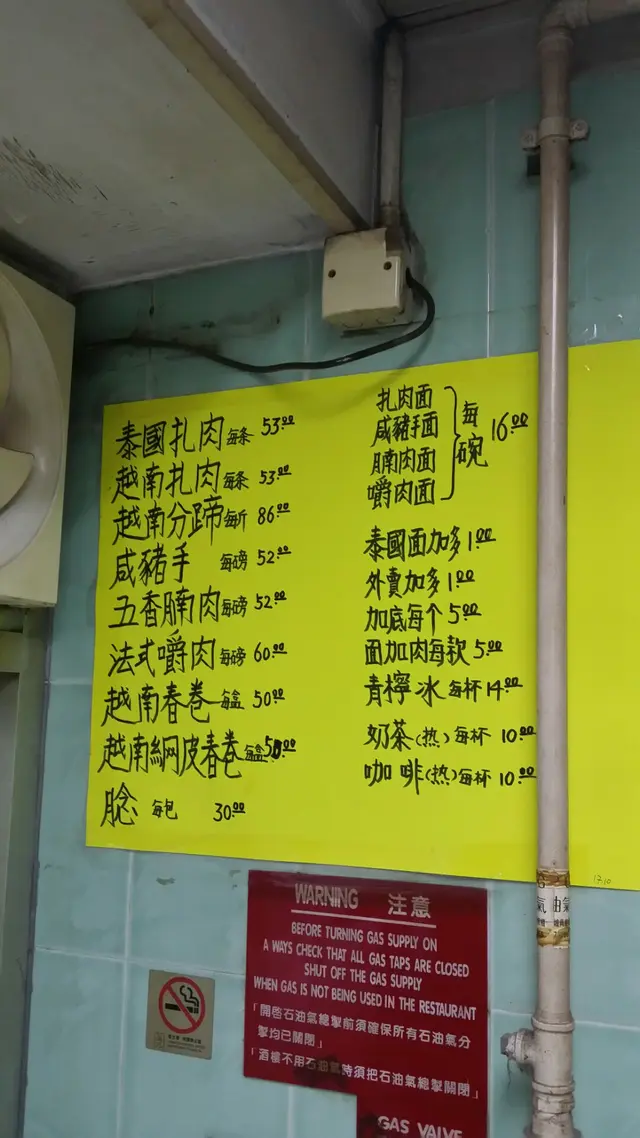 泰國扎肉每条 53.00
越南扎肉每条 53.00
越南分蹄每斤 86.00
咸豬手 每磅 52.00
五香腩肉每磅 52.00
法式嚼肉每磅 60.00
越南春巻每盒 50.00
越南網皮春巻每盒 50.00
腍 每包 30.00
扎肉面
咸豬手面
腩肉面
嚼肉面
每碗 16.00
泰國面加多 1.00
外賣加多 1.00
加底每个 5.00
面加肉每款 5.00
青檸冰 每杯 14.00
奶茶(热)每杯 10.00
咖啡(热)每杯 10.00
WARNING 注意
BEFORE TURNING GAS SUPPLY ON
A WAYS CHECK THAT ALL GAS TAPS ARE CLOSED
SHUT OFF THE GAS SUPPLY
WHEN GAS IS NOT BEING USED IN THE RESTAURANT
「開啓石油氣總掣前須確保所有石油氣分
掣均已關閉」
「酒樓不用石油氣時須把石油氣總掣關閉」
GAS VALVE
石油氣